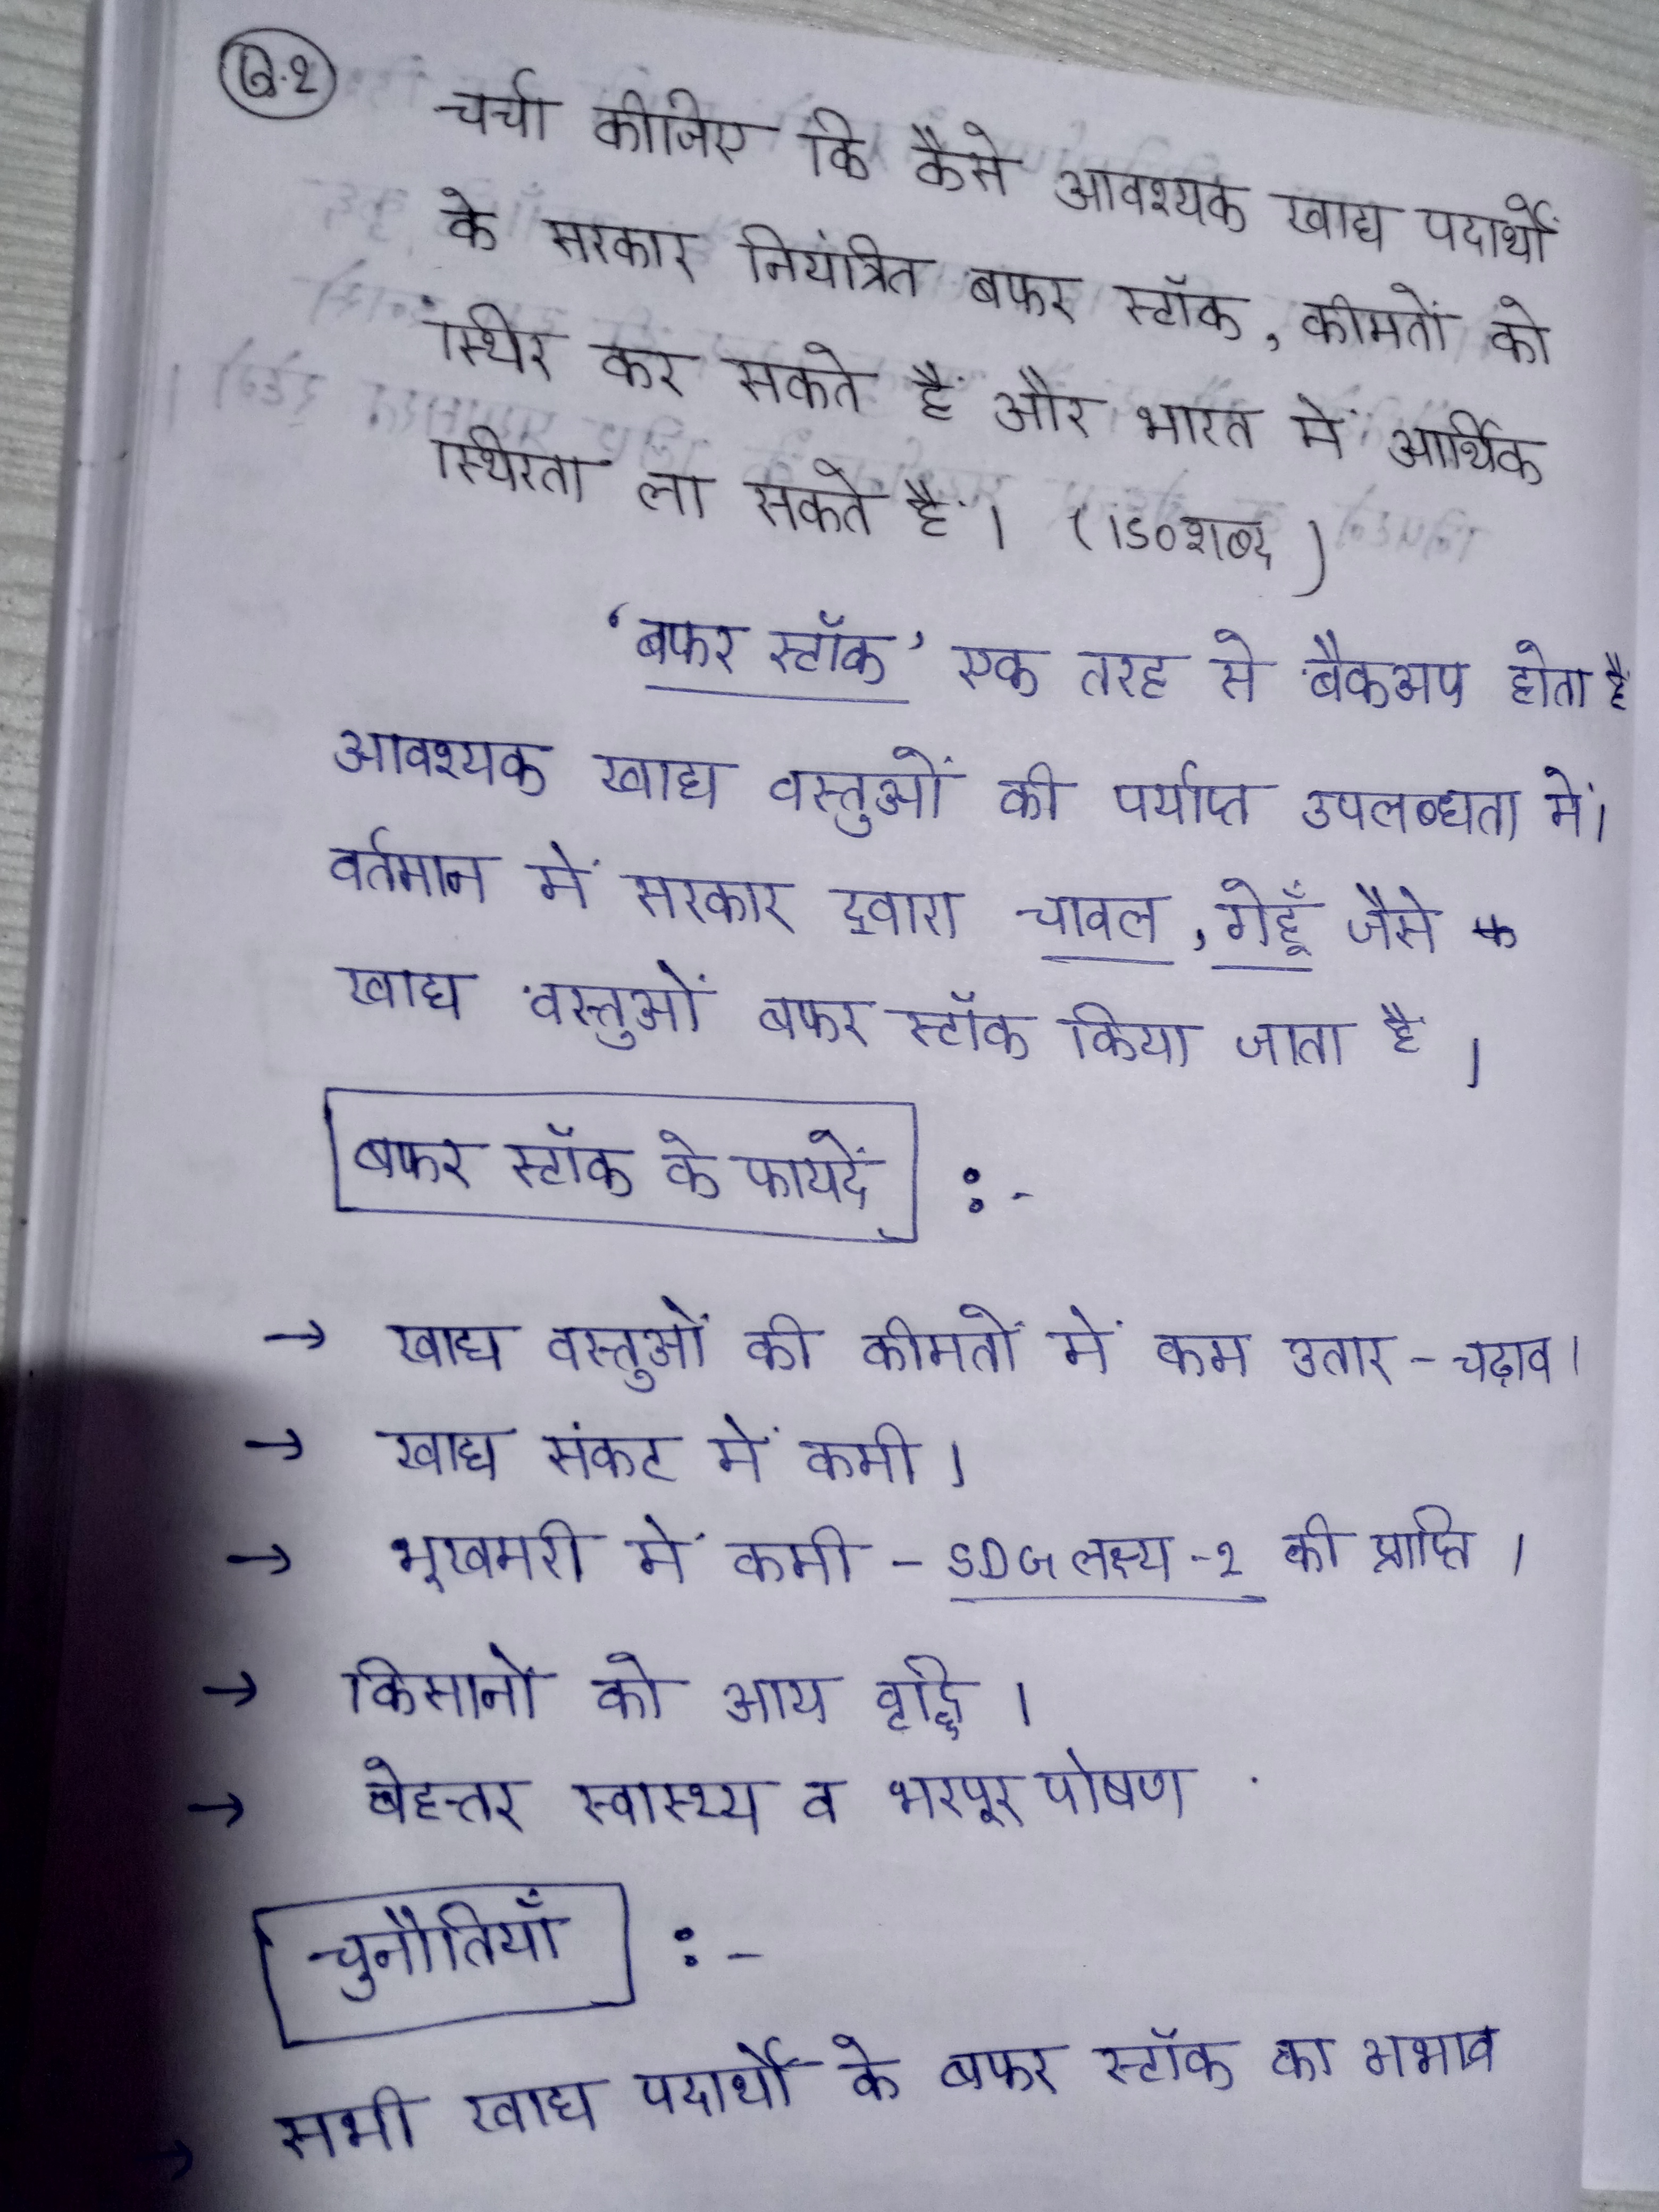 Q.2
चर्चा कीजिए कि कैसे आवश्यक खाद्य पदार्थों
के सरकार नियंत्रित बफर स्टॉक, कीमतों को
स्थिर कर सकते हैं और भारत में आर्थिक
स्थिरता ला सकते हैं। (150 शब्द)
'बफर स्टॉक' एक तरह से बैकअप होता है
आवश्यक खाद्य वस्तुओं की पर्याप्त उपलब्धता में।
वर्तमान में सरकार द्वारा चावल, गेहूँ जैसे
खाद्य वस्तुओं बफर स्टॉक किया जाता है।
बफर स्टॉक के फायदें :-
→ खाद्य वस्तुओं की कीमतों में कम उतार-चढ़ाव।
→ खाद्य संकट में कमी।
→ भूखमरी में कमी - SDG लक्ष्य-2 की प्राप्ति।
→ किसानों को आय वृद्धि।
→ बेहत्तर स्वास्थ्य व भरपूर पोषण
चुनौतियाँ :-
→ सभी खाद्य पदार्थों के बफर स्टॉक का अभाव